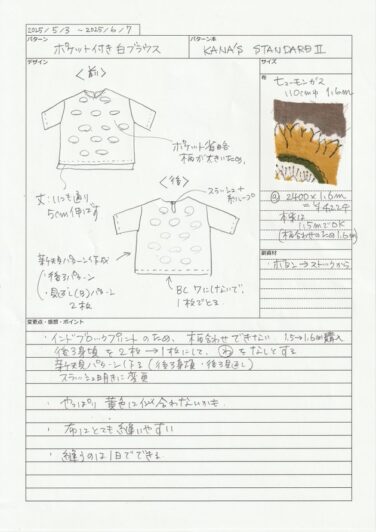 2025/5/3 ~2025/6/7
パターン
ポケット付き白ブラウス
パターン本
KANA'S STANDARD II
デザイン
<前>
ポケット省略
柄が大きいため。
丈:いつも通り
5cm伸ばす
<後>
スラッシュ+
布ループ
新たにパターン作成
・後ろパターン
・見返し(後)パターン
2枚
BCワにしないで、
1枚でとる
サイズ
布
ヒューモンガス
110cm巾 1.6m
@2400×1.6m
本来は
1.5mでOK
(柄合わせのため1.6m)
副資材
・ボタン→ストックから
変更点・感想・ポイント
・インドブロックプリントのため、柄合わせできない 1.5→1.6m購入
後ろ身頃を2枚→1枚にして、をなしとする
新たにパターン作る(後ろ身頃・後ろ見返し)
スラッシュ明きに変更
・やっぱり黄色は似合わないかも。
・布はとても縫いやすい
・縫うのは1日でできる